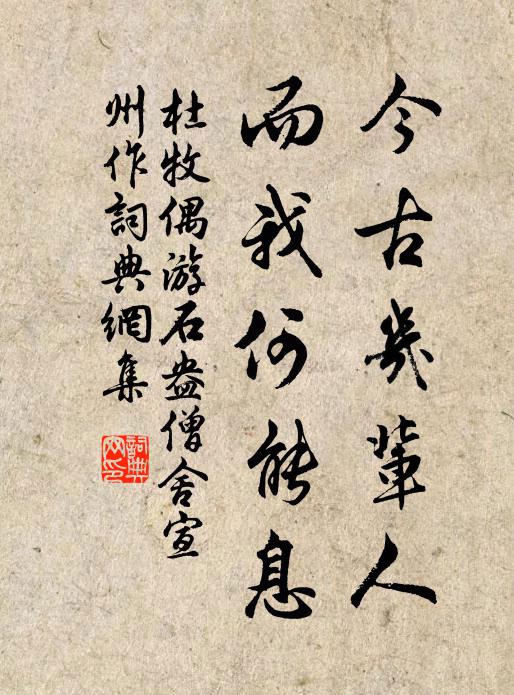 今古幾輩人
而我何能息
杜牧偶游石盎僧舍宣
州作詞典網集
詞典
网印